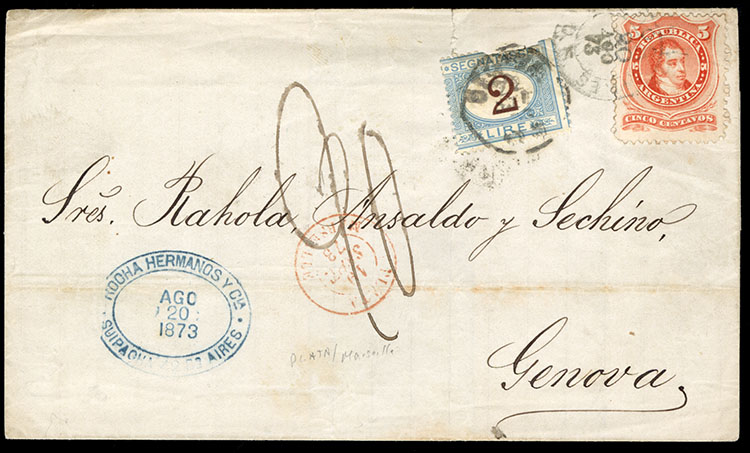 5 REPUBLICA 5
ARGENTINA
CINCO CENTAVOS
2
LIRE
Sres. Rahola, Ansaldo y Sechino,
Genova
ROCHA HERMANOS Y Cia
AGO
20
1873
AIRES
PLATA / Marseille